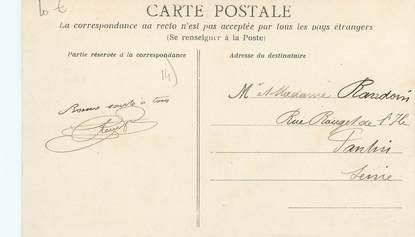 10 €
CARTE POSTALE
La correspondance au recto n'est pas acceptée par tous les pays étrangers
(Se renseigner à la Poste)
Partie réservée à la correspondance
Adresse du destinataire
14)
Bonne santé à tous
Mr et Madame Randoin
Rue Rouget de l'Isle
Pantin
Seine